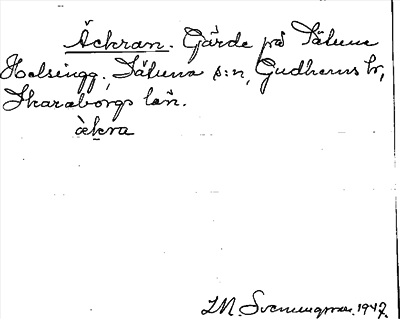 Äckran. Gärde på Säluna
Helsingg. Säluna s:n, Gudhems hr,
Skaraborgs län.
àkra
I.M. Svenungsson. 1947.